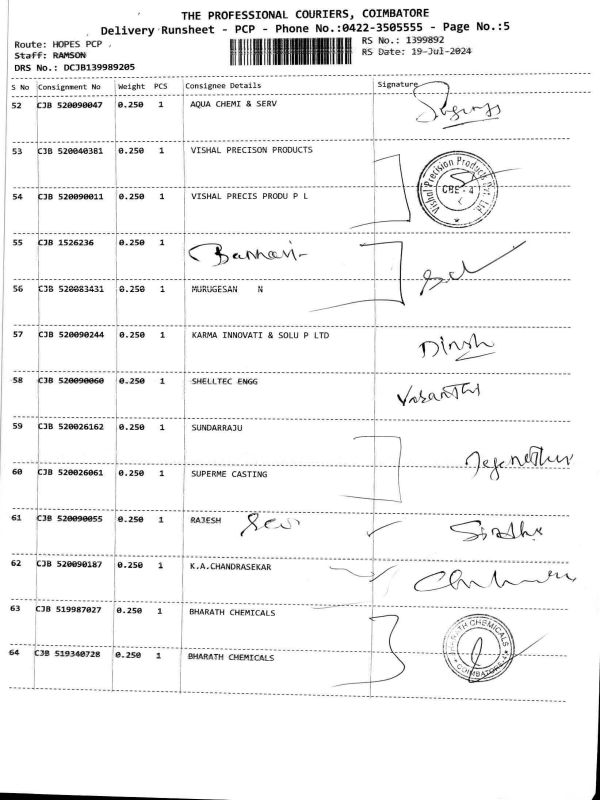 THE PROFESSIONAL COURIERS, COIMBATORE
Delivery Runsheet - PCP - Phone No.:0422-3505555 - Page No.:5
Route: HOPES PCP
RS No.: 1399892
Staff: RAMSON
RS Date: 19-Jul-2024
DRS No.: DCJB139989205
S No Consignment No Weight PCS Consignee Details Signature
52 CJB 520090047 0.250 1 AQUA CHEMI & SERV
53 CJB 520040381 0.250 1 VISHAL PRECISON PRODUCTS
Vishal Precision Products Pvt. Ltd. CBE - 4
54 CJB 520090011 0.250 1 VISHAL PRECIS PRODU P L
55 CJB 1526236 0.250 1 Bannari
56 CJB 520083431 0.250 1 MURUGESAN N
57 CJB 520090244 0.250 1 KARMA INNOVATI & SOLU P LTD Dinsh
58 CJB 520090060 0.250 1 SHELLTEC ENGG Vasanthi
59 CJB 520026162 0.250 1 SUNDARRAJU
60 CJB 520026061 0.250 1 SUPERME CASTING
61 CJB 520090055 0.250 1 RAJESH
62 CJB 520090187 0.250 1 K.A.CHANDRASEKAR
63 CJB 519987027 0.250 1 BHARATH CHEMICALS
BHARATH CHEMICALS COIMBATORE
64 CJB 519340728 0.250 1 BHARATH CHEMICALS